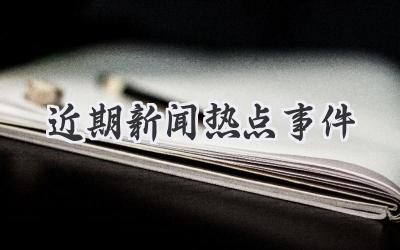 近期新闻热点事件